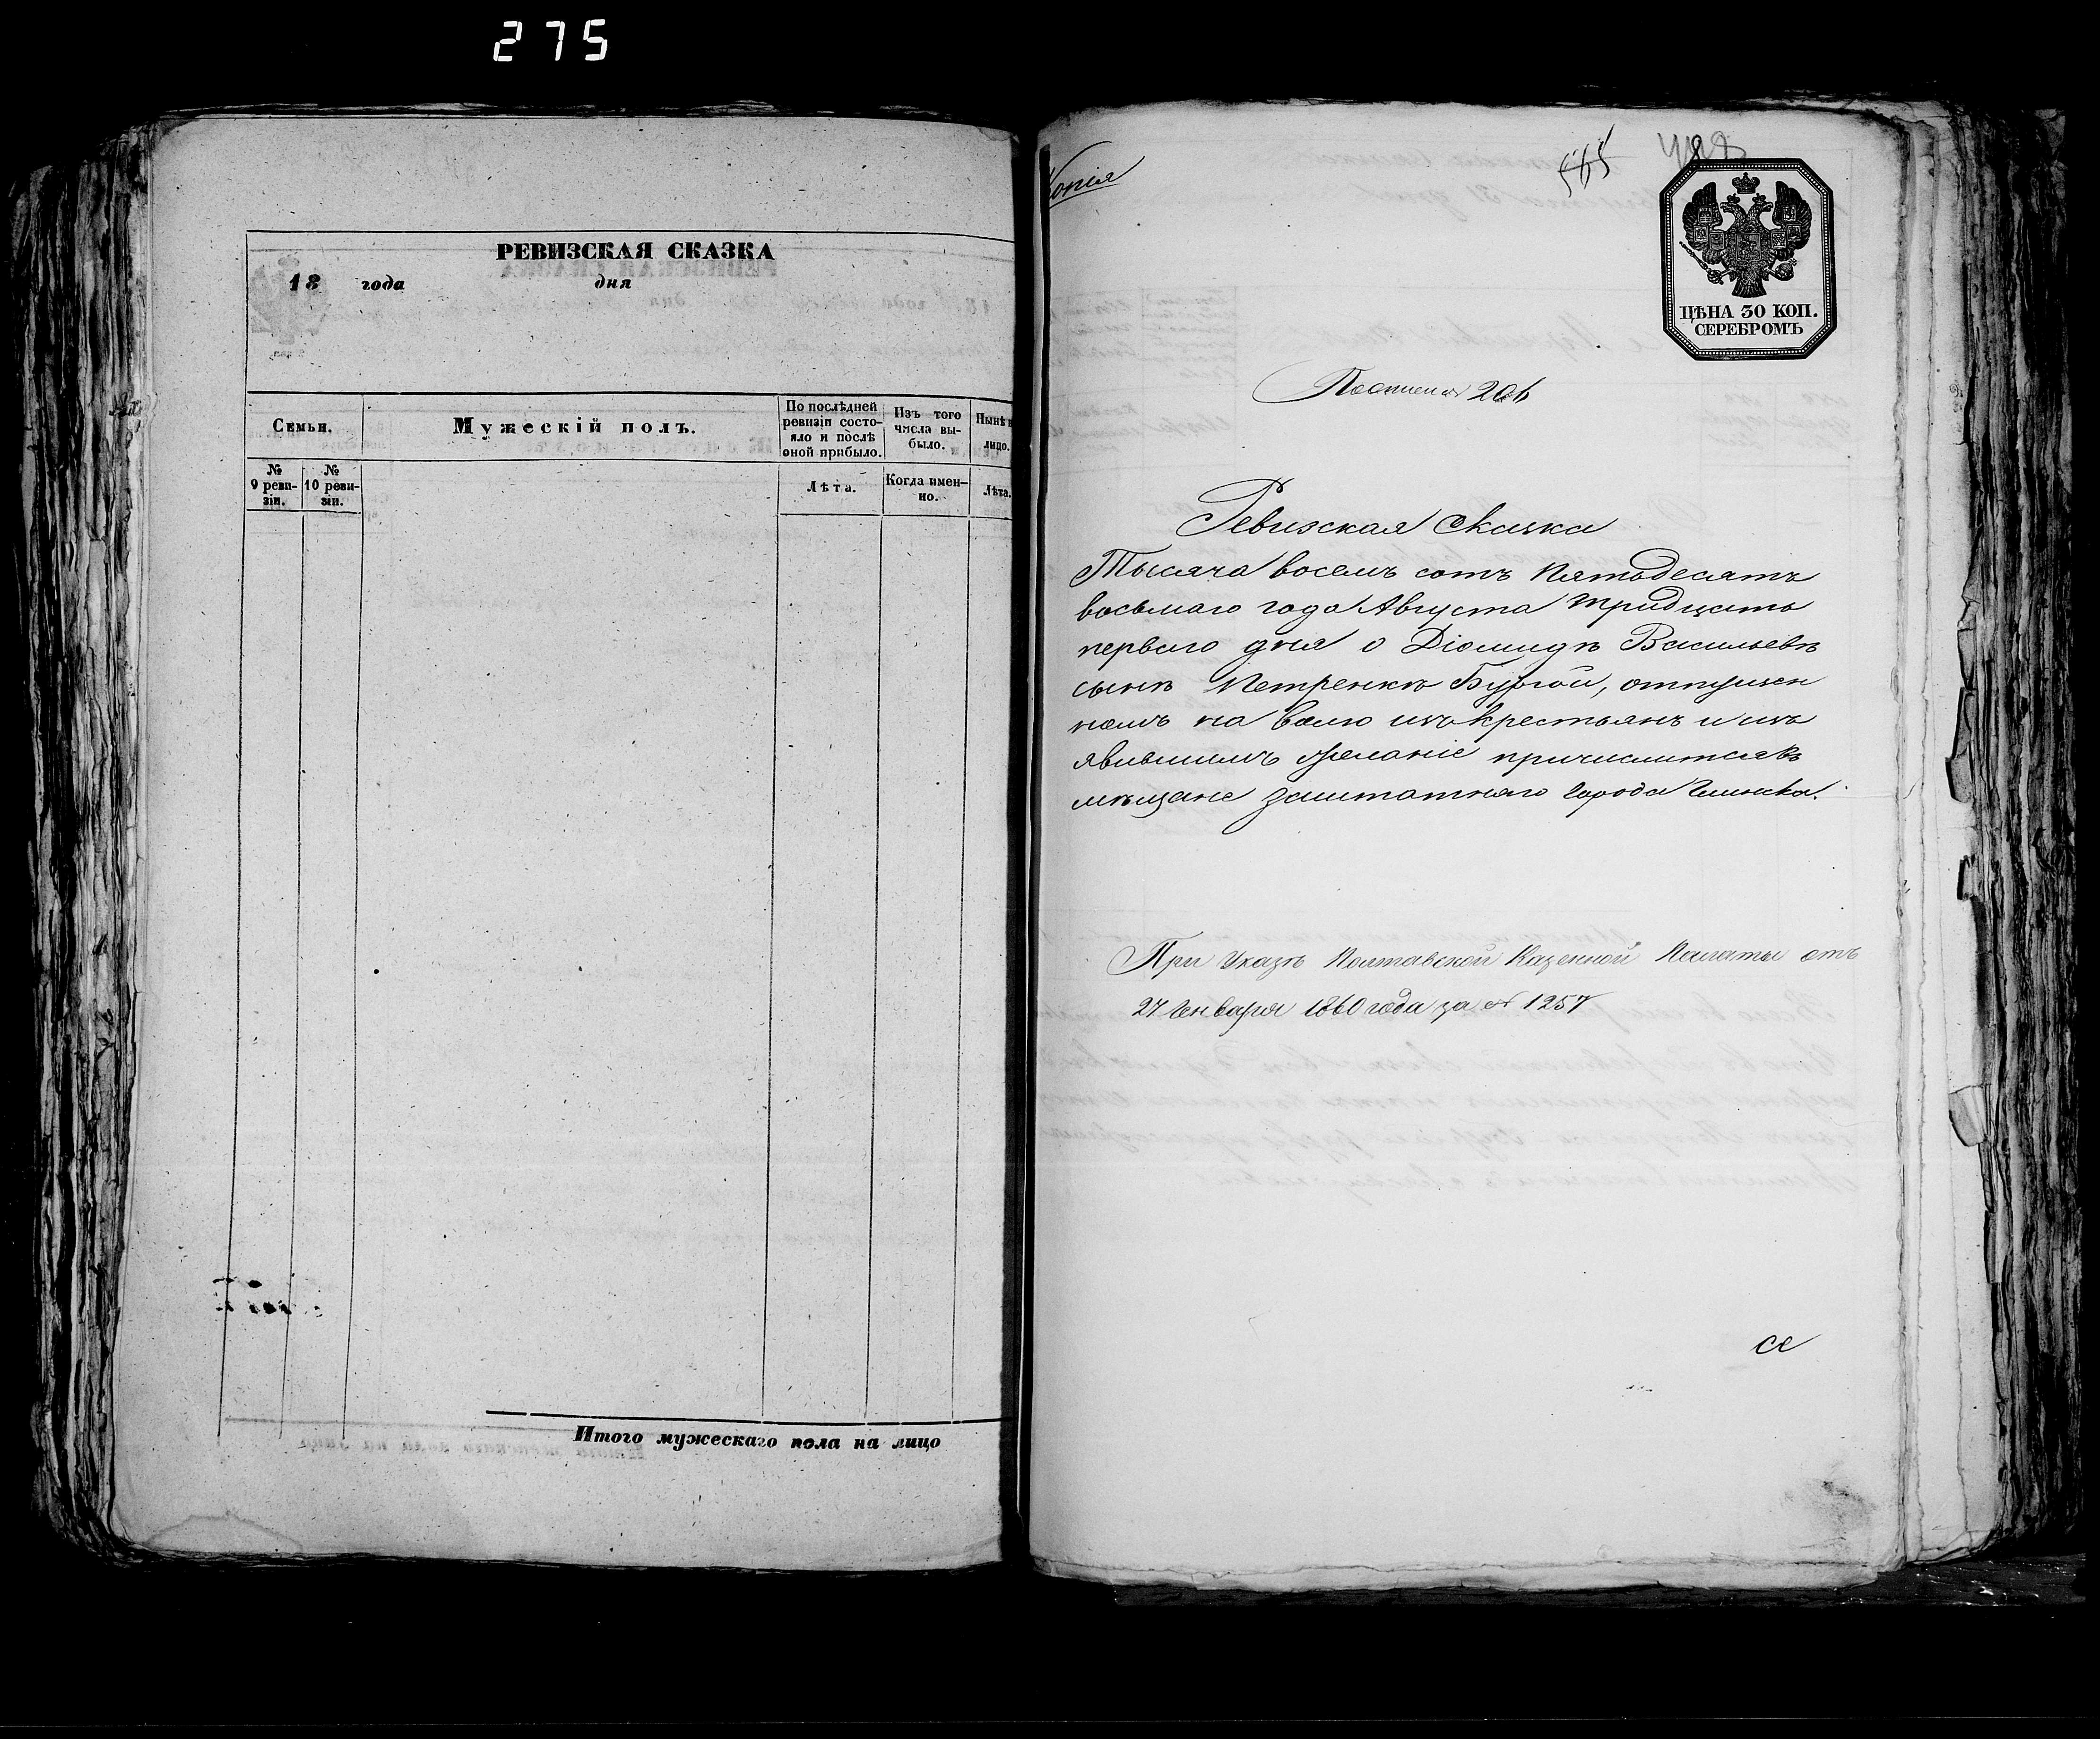 275
РЕВИЗСКАЯ СКАЗКА
18 года дня
Семьи.
Мужескій полъ.
По послѣдней
ревизіи состо-
яло и послѣ
оной прибыло.
Изъ того
числа вы-
было.
Нынѣ
лицо.
№
9 реви-
зіи.
№
10 реви-
зіи.
Лѣта.
Когда имен-
но.
Лѣта.
Итого мужескаго пола на лицо
Копія
565
488
ЦѢНА 30 КОП.
СЕРЕБРОМЪ
Ревизская Сказка
Тысяча восемъ сотъ Пятьдесятъ
восьмаго года Августа тридцать
перваго дня о Діомидѣ Васильевѣ
сынѣ Петренкѣ Бургой, отпущен
номъ на волю изъ крестьянъ и изъ
явившимъ желаніе причислится въ
мѣщане заштатнаго города Глинска.
При Указѣ Полтавской Казенной Палаты отъ
27 Генваря 1860 года за № 1257
се